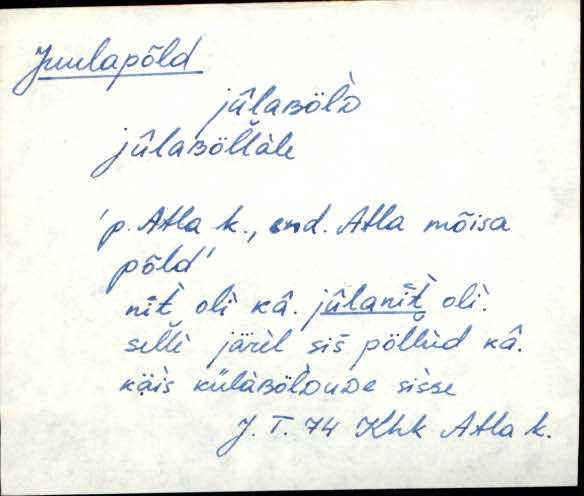 Juulapõld
jûlaʙölᴅ̀
jûlaʙöl̆l̆àle
'p. Atla k., end. Atla mõisa
põld'
nīt̀ olì kâ. jûlanīt̀ olì.
sellè järèl siš pöllùd kâ.
käis külàʙölᴅuᴅe sisse
J. T. 74 Khk Atla k.